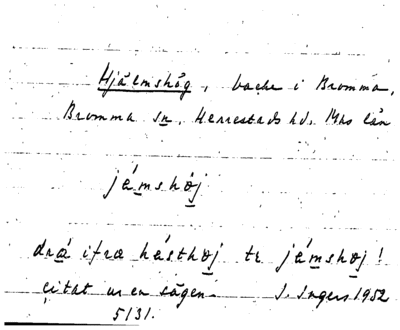 Hjälmshög, backe i Bromma,
Bromma sn, Herrestads hd. Mhs län
jámshøj
drá ifra hásthøj te jámshøj!
citat ur en sägen. I. Ingers 1952
5131.